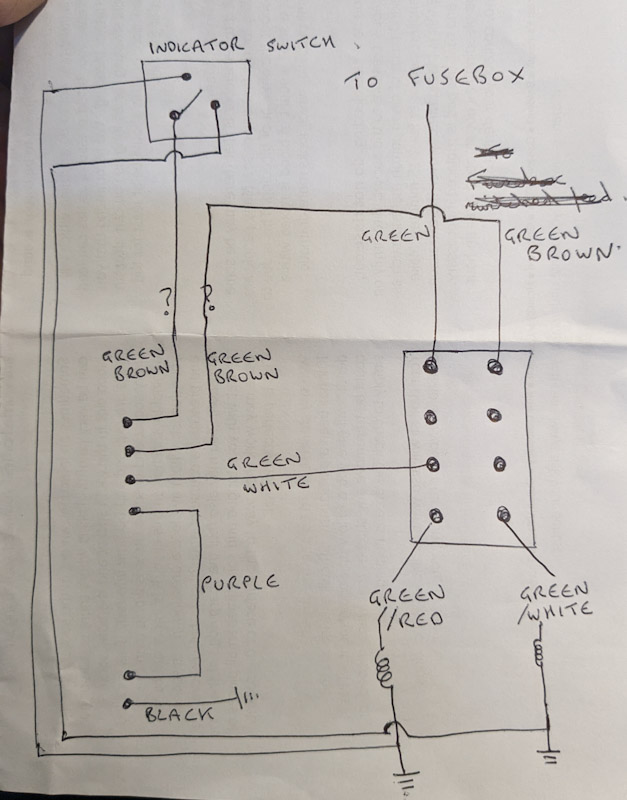 INDICATOR SWITCH.
TO FUSEBOX
GREEN
GREEN
BROWN
?
?
GREEN
BROWN
GREEN
BROWN
GREEN
WHITE
PURPLE
GREEN
/RED
GREEN
/WHITE
BLACK